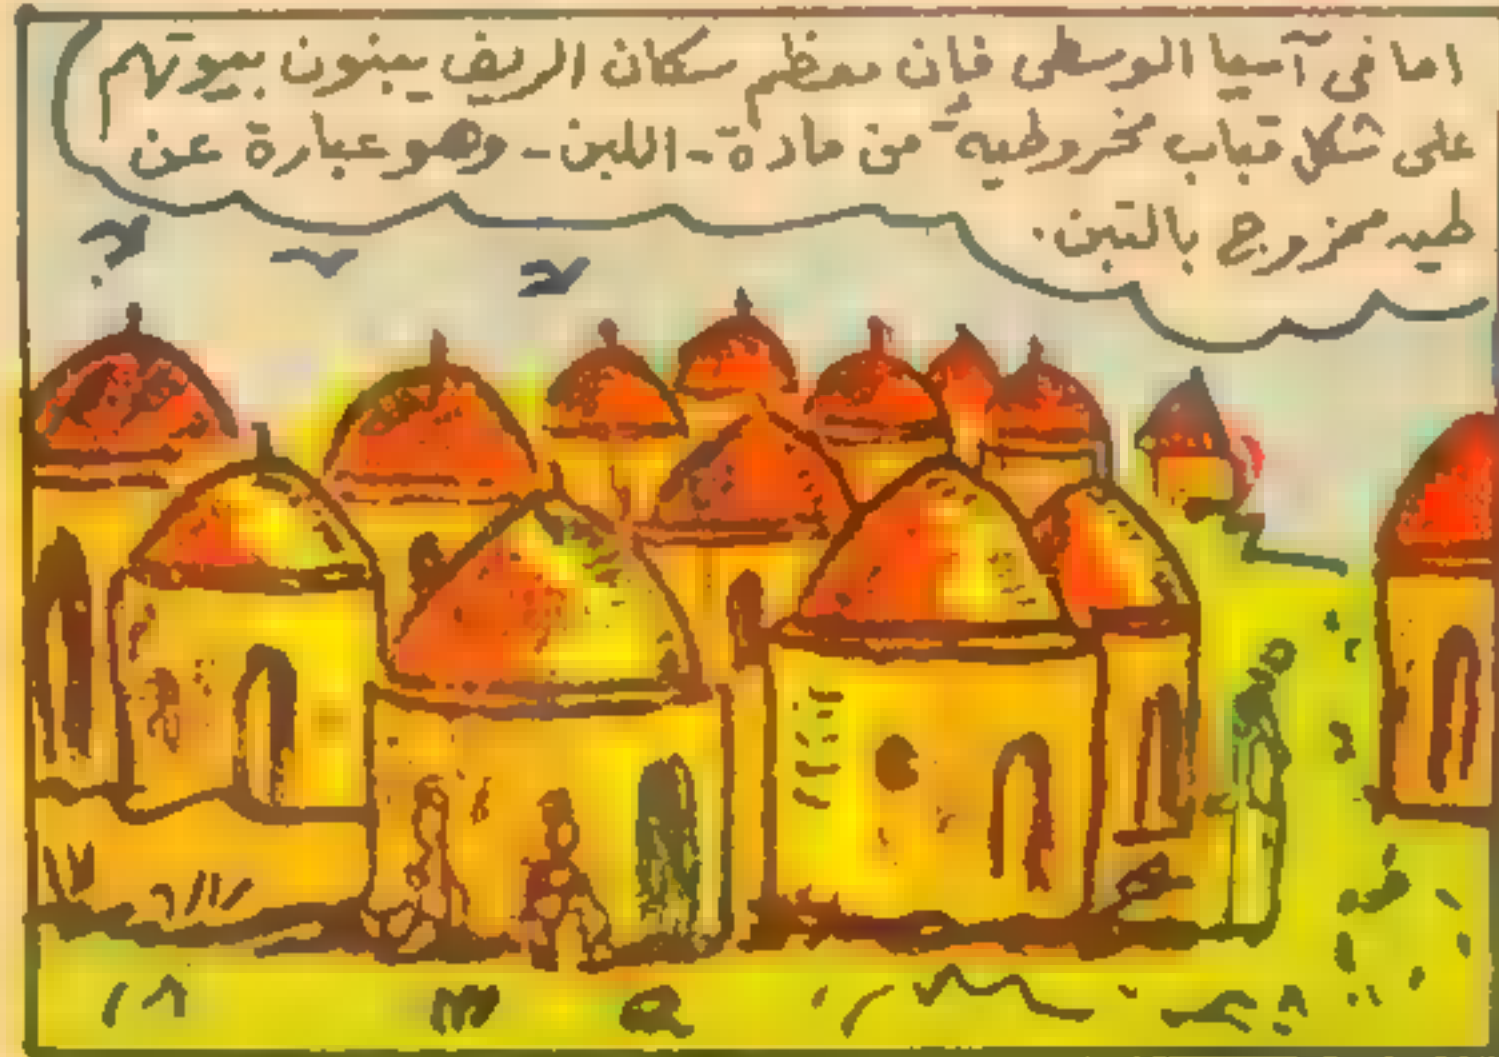 اما في آسيا الوسطى فإن معظم سكان الريف يبنون بيوتهم
على شكل قباب مخروطية من مادة - اللبن - وهو عبارة عن
طين ممزوج بالتبن.